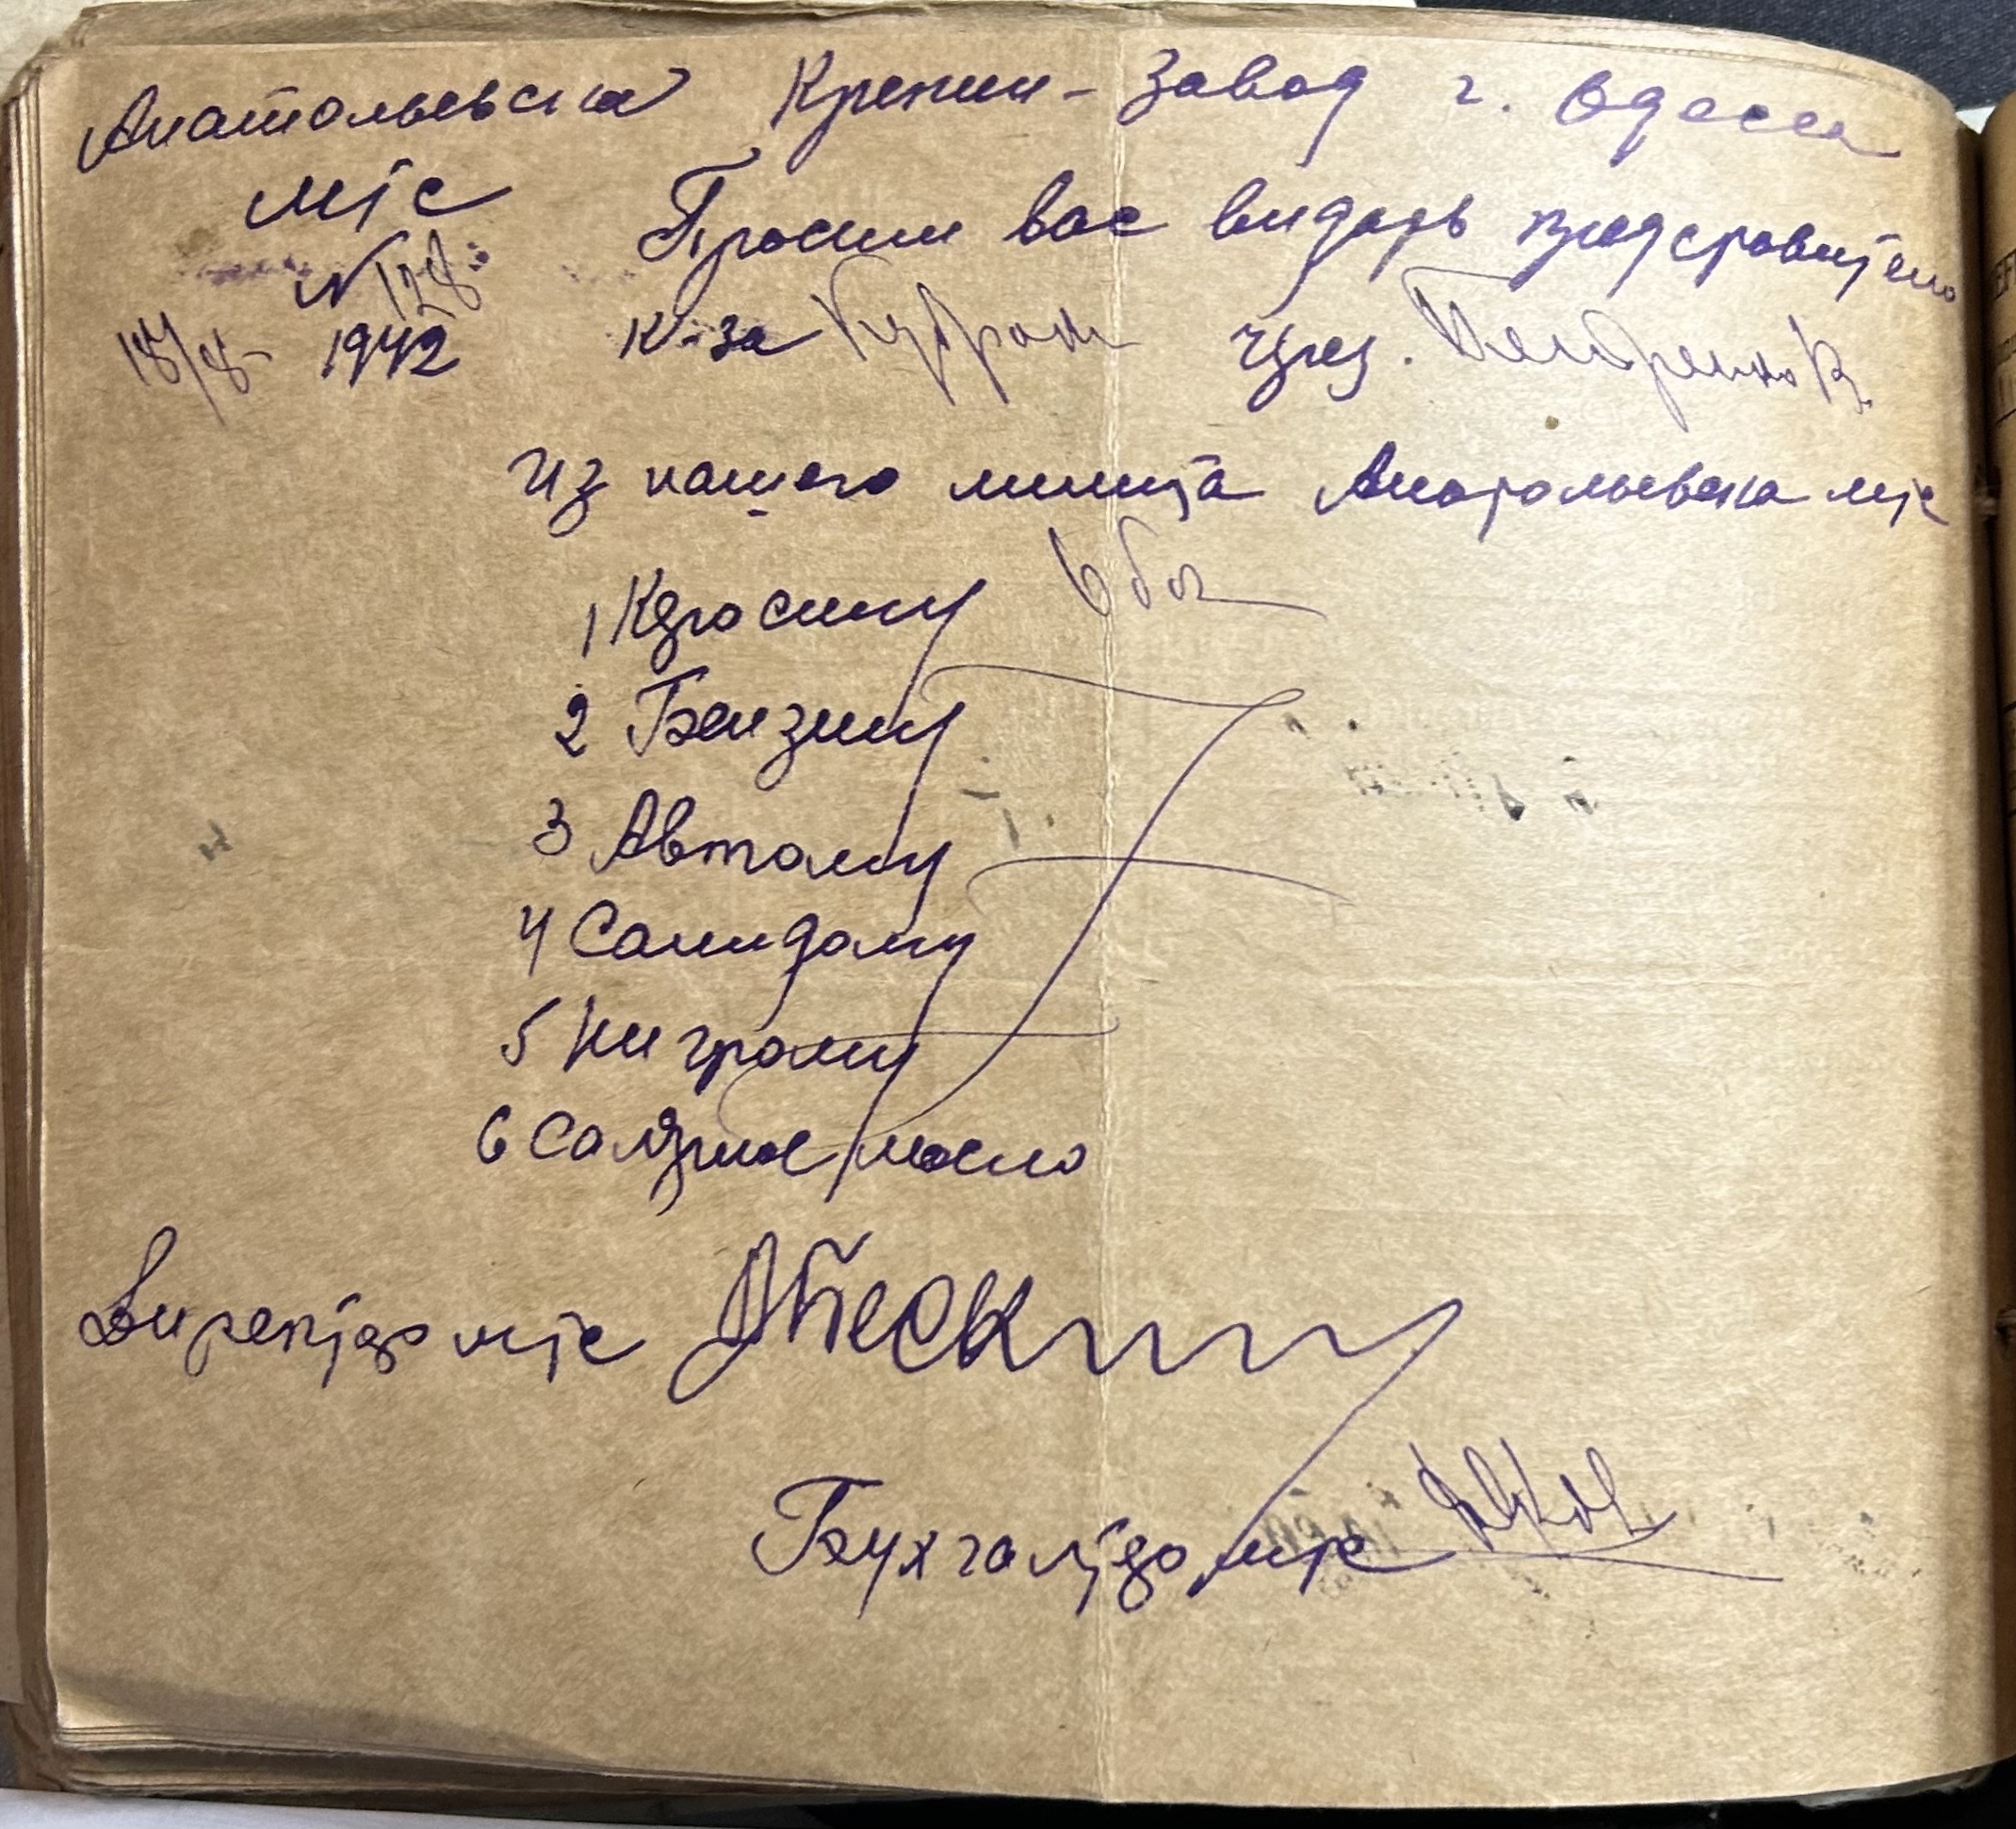 Анатольевска Крекин-завод г. Одесса
мтс
N 128
18/8 1942
Просим вас видать представителю
к-за через.
Из нашего лимита Анатольевска мтс
1 Керосину
2 Бензину
3 Автолу
4 Солидолу
5 Нигролу
6 Солярное масло
Директор мтс
Бухгалтер мтс